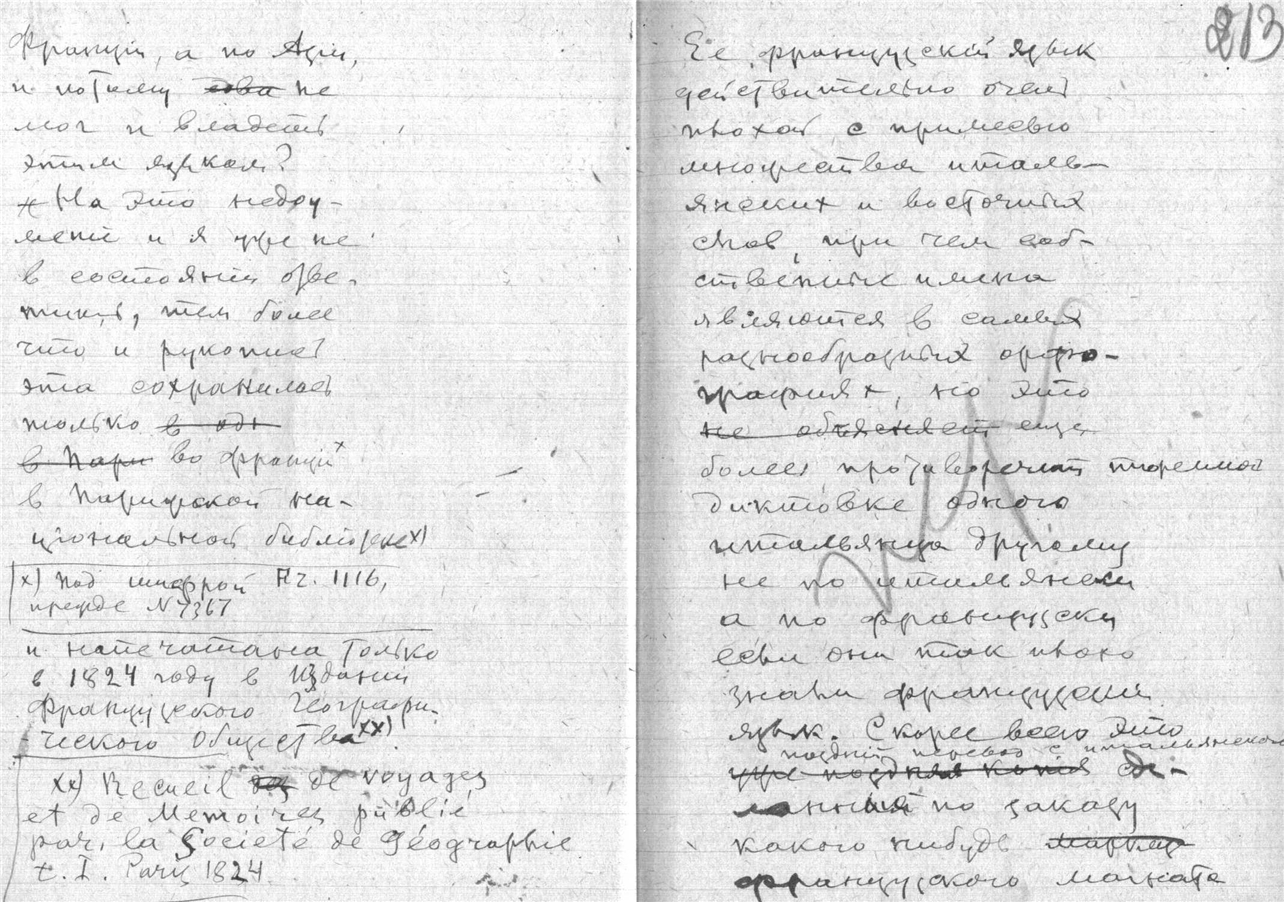 Франціи, а по Азіи,
и потому едва не
мог и владеть
этим языком?
На это недоу-
мение и я уже не
в состоянии отве-
тить, тем более
что и рукопись
эта сохранилась
только в одн
в Пари во Франции x
в Парижской на-
циональной библиотеке x)
x) под шифрой Fr. 1116,
прежде N 7367
и напечатана только
в 1824 году в издании
Французского Географи-
ческого Общества xx)
xx) Recueil de voyages
et de Memoires publié
par la Societé de Géographie
t. I. Paris 1824
213
Ее французский язык
действительно очень
плохой с примесью
множества италь-
янских и восточных
слов, при чем соб-
ственные имена
являются в самых
разнообразных орфо-
графиях, но это
не объясняет еще
более противоречит тюремной
диктовке одного
итальянца другому
не по итальянски
а по французски
если они так плохо
знали французский
язык. Скорее всего это
поздний перевод с итальянского
уже поздняя копия сде-
ланный по заказу
какого нибудь
французского магната